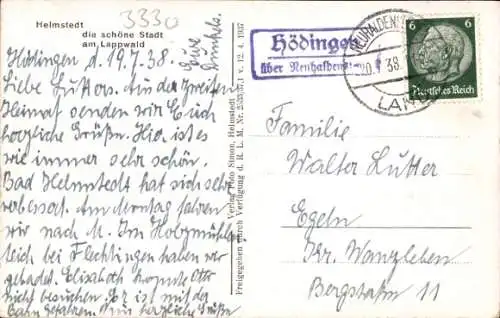 3330
Helmstedt
die schöne Stadt
am Lappwald
Hödingen d. 19.7.38.
Liebe Lutters. Aus der zweiten
Heimat senden wir Euch
herzliche Grüße. Hier ist es
wie immer sehr schön.
Bad Helmstedt hat sich sehr
verbessert. Am Montag fahren
wir nach M. Im
bei Flechtingen haben wir
gebadet. Elisabeth konnte Otto
nicht besuchen. Er ist mit der
Bahn gefahren. Nun herzliche Grüße
Eure
Verlag Foto Simon, Helmstedt
Freigegeben durch Verfügung d. R. L. M. Nr. 12. 4. 1937
Hödingen
über Neuhaldensleben
NEUHALDENS
38
LAND
6 6
Deutsches Reich
Familie
Walter Lutter
Egeln
Kr. Wanzleben
Bergstraße 11